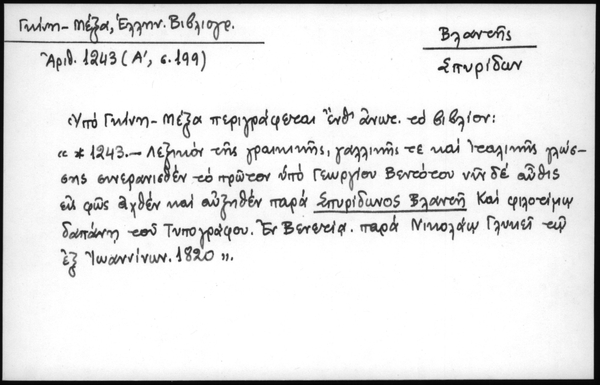 Γκίνη-Μέξα, Ἑλλην. Βιβλιογρ.
Ἀριθ. 1243 (Α', σ. 199)
Βλαντῆς
Σπυρίδων
Ὑπό Γκίνη-Μέξα περιγράφεται ἔνθ' ἀνωτ. τό βιβλίον:
«*1243.- Λεξικόν τῆς γραικικῆς, γαλλικῆς τε καί ἰταλικῆς γλώσ-
σης συνερανισθέν τό πρῶτον ὑπό Γεωργίου Βεντότου νῦν δέ αὖθις
εἰς φῶς ἀχθέν καί αὐξηθέν παρά Σπυρίδωνος Βλαντῆ Καί φιλοτίμῳ
δαπάνῃ τοῦ Τυπογράφου. Ἐν Βενετίᾳ. παρά Νικολάῳ Γλυκεῖ τῷ
ἐξ Ἰωαννίνων. 1820».